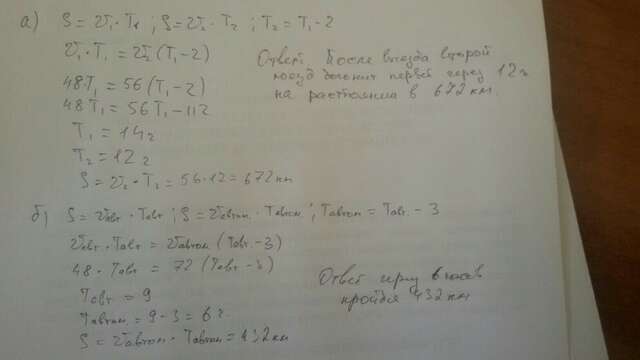 а) S = v₁·T₁ ; S = v₂·T₂ ; T₂ = T₁ - 2
v₁·T₁ = v₂(T₁-2)
48T₁ = 56(T₁-2)
48T₁ = 56T₁ - 112
T₁ = 14ч
T₂ = 12ч
S = v₂·T₂ = 56·12 = 672км
Ответ После выезда второй
поезд догонит первый через 12ч
на расстоянии в 672 км.
б) S = vавт·Tавт ; S = vавтом.·Tавтом. ; Tавтом = Tавт. - 3
vавт·Tавт = vавтом(Tавт.-3)
48·Tавт = 72(Tавт-3)
Tавт = 9
Tавтом. = 9-3 = 6ч.
S = vавтом·Tавтом. = 432км
Ответ 6 часов
пройдя 432 км